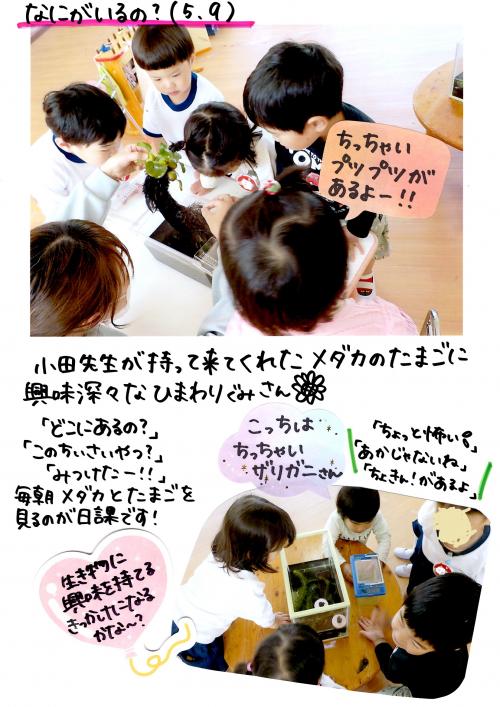 なにがいるの？(5、9)
ちっちゃい
プツプツが
あるよー！！
小田先生が持って来てくれたメダカのたまごに
興味深々なひまわりぐみさん
「どこにあるの？」
「このちいさいやつ？」
「みつけたー！！」
毎朝メダカとたまごを
見るのが日課です！
こっちは
ちっちゃい
ザリガニさん
「ちょっと怖い」
「あかじゃないね」
「ちょきん！があるよ」
生き物に
興味を持てる
きっかけになる
かな〜？